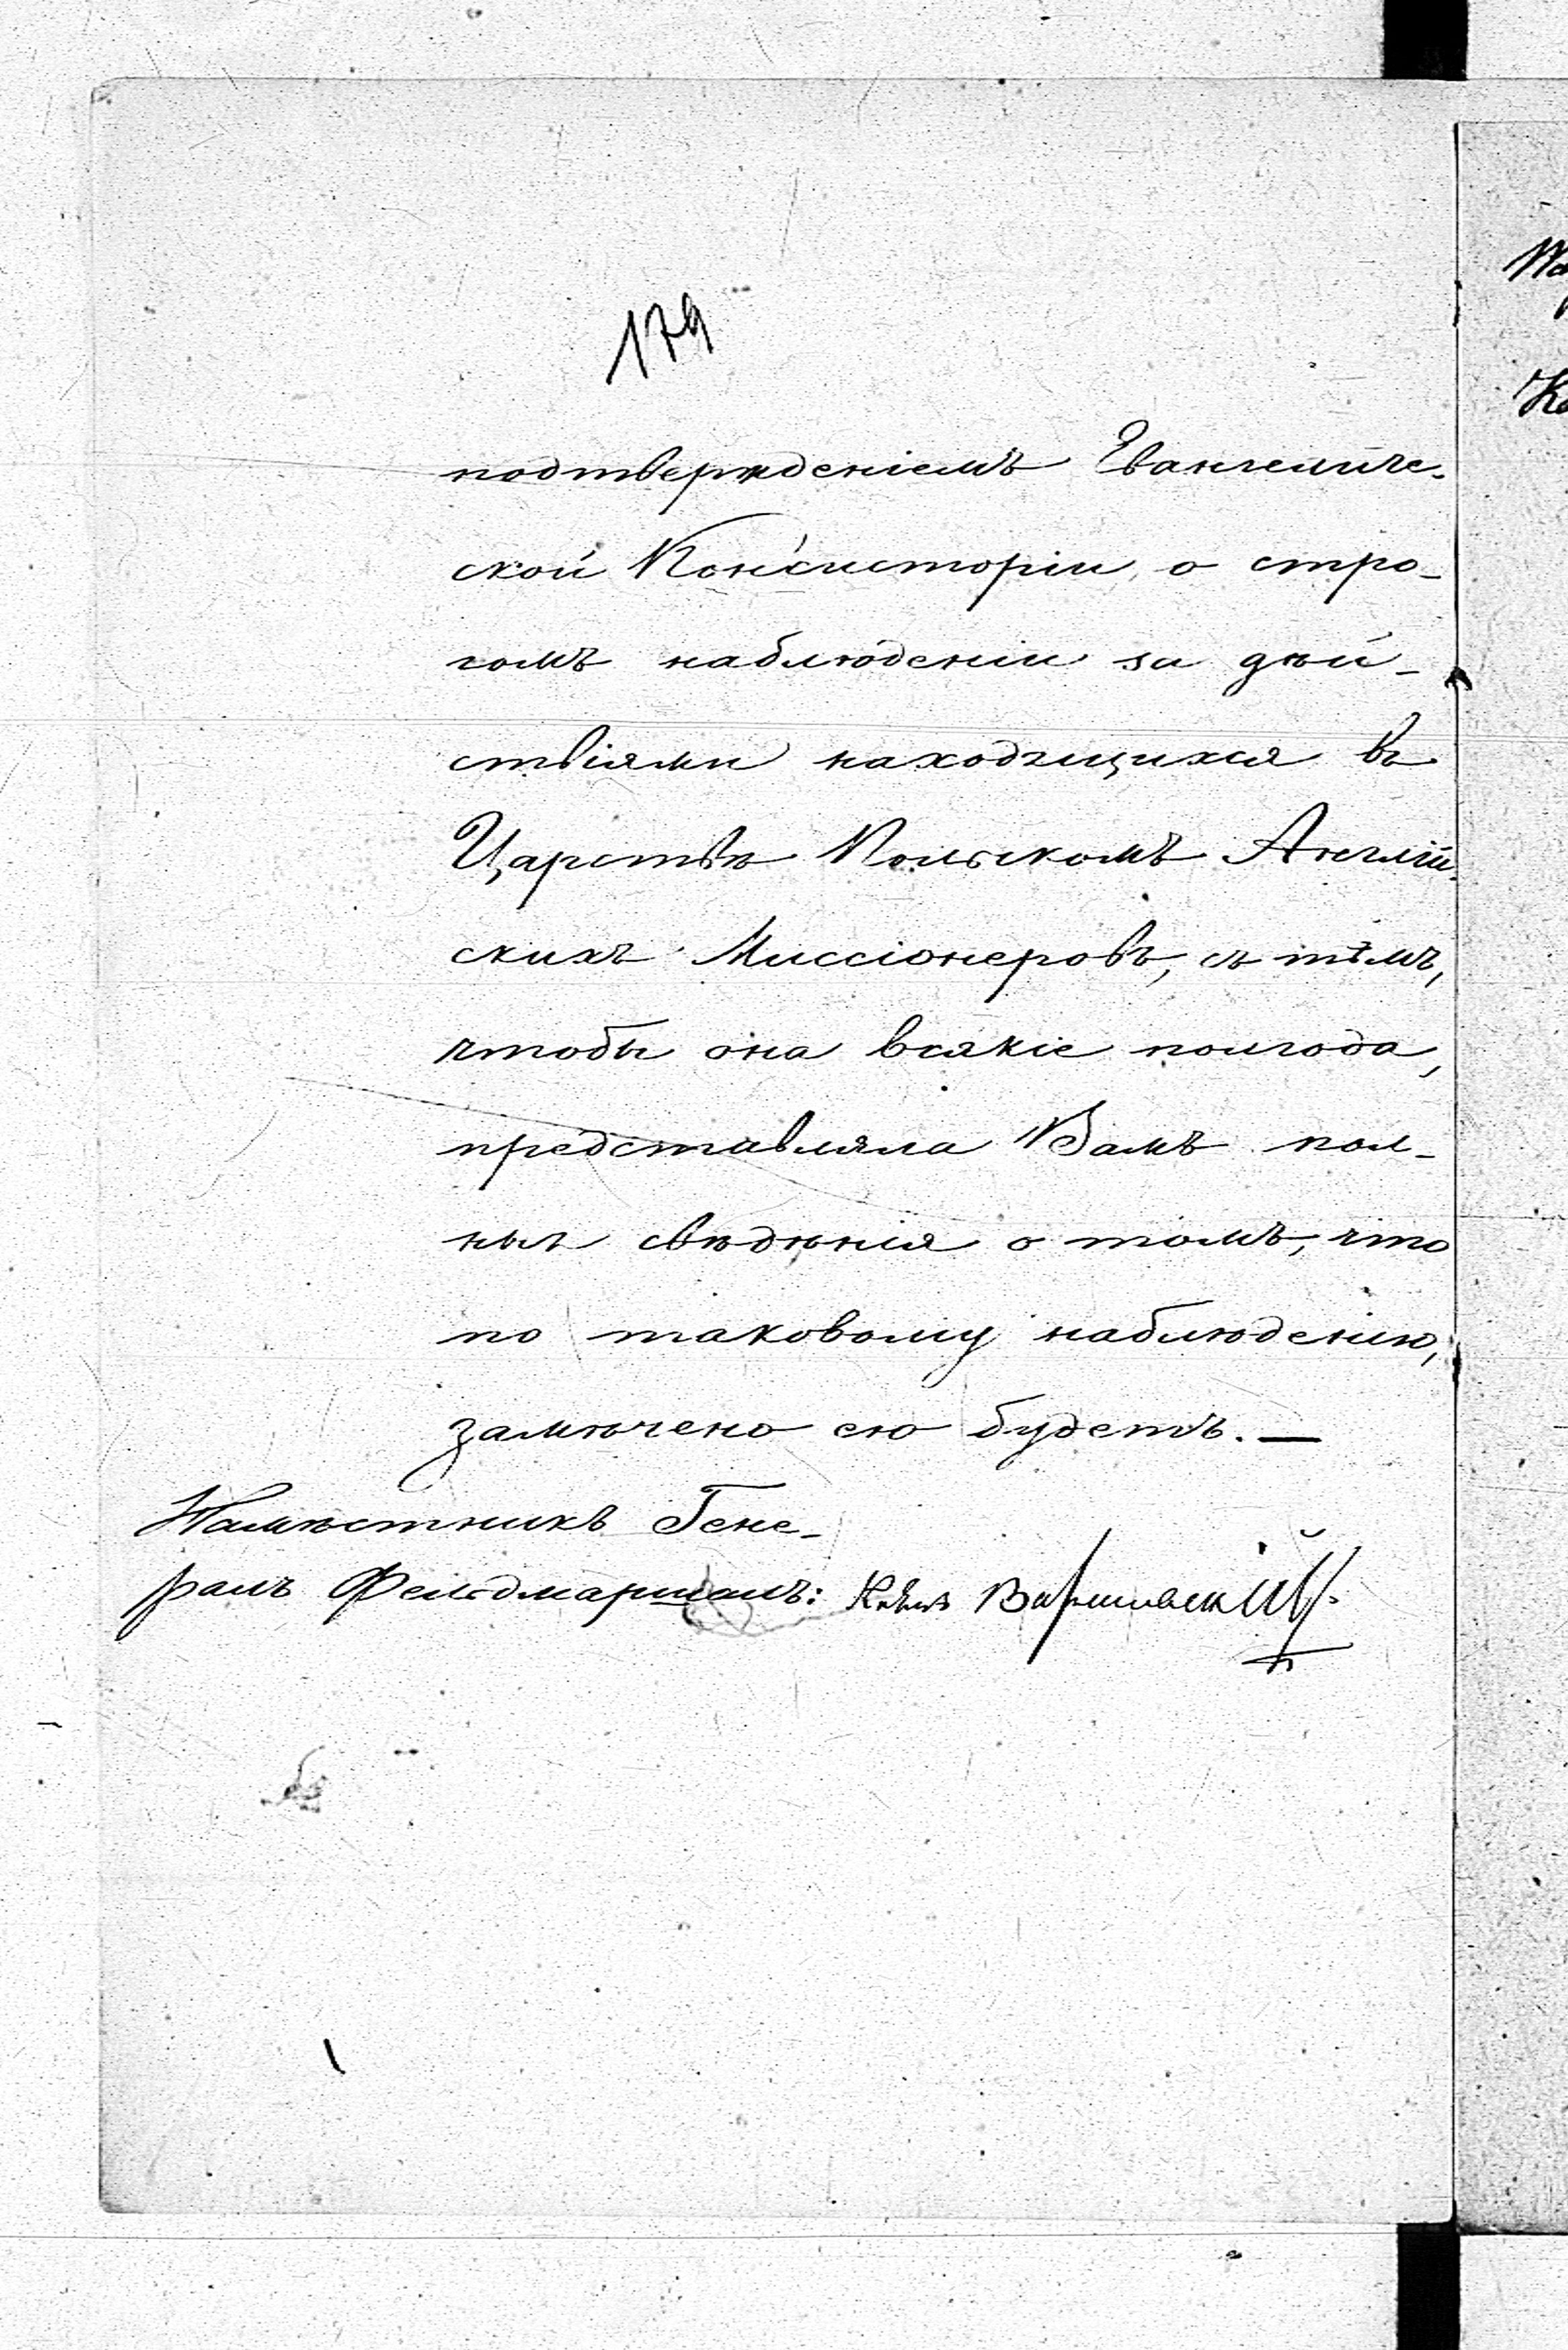 179
подтвержденіемъ Евангеличе-
ской Консисторіи, о стро-
гомъ наблюденіи за дѣй-
ствіями находящихся въ
Царствѣ Польскомъ Англій-
скихъ Миссіонеровъ, съ тѣмъ,
чтобы она всякіе полгода,
представляла Вамъ пол-
ныя свѣдѣнія о томъ, что
по таковому наблюденію,
замѣчено ею будетъ. —
Намѣстникъ Гене-
ралъ Фельдмаршалъ: Князь Варшавскій